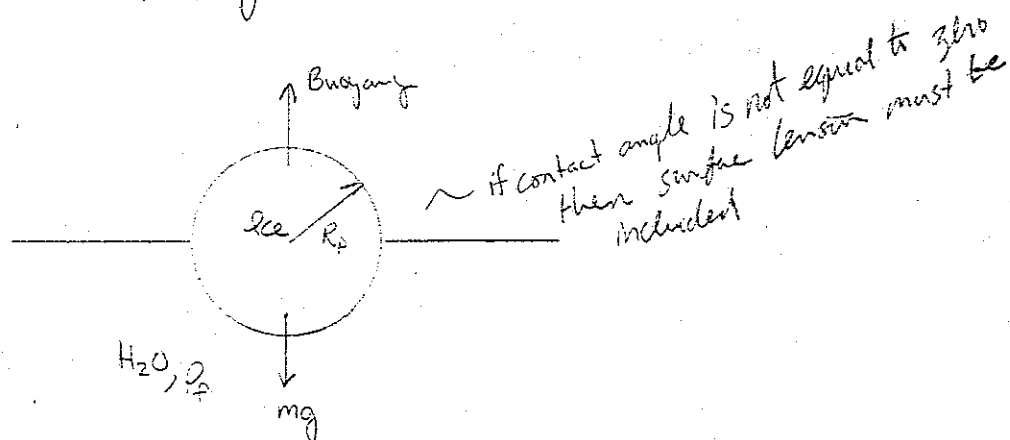 Buoyancy
~ if contact angle is not equal to zero
then surface tension must be
included
Ice
R
H₂O, ρ
mg